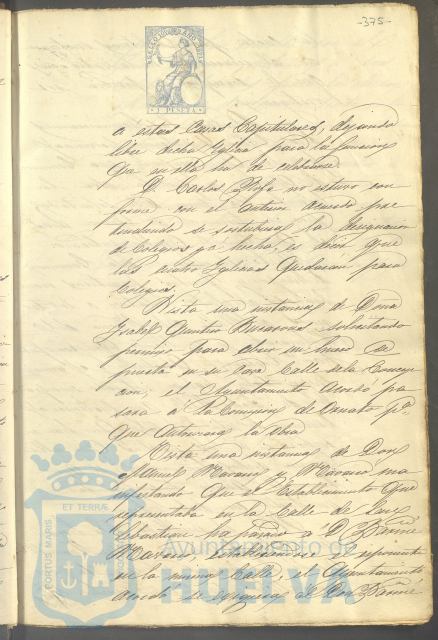 -375-
1 PESETA
a estas Casas Capitulares, dejando
libre dicha Yglesia para la funcion
que en ella ha de celebrarse
D. Carlos no estuvo con
forme con el anterior acuerdo pre
tendiendo se sostubiera la designacion
de Colegios ya hecha, es decir que
las cuatro Yglesias quedaran para
Colegios.
Vista una instancia de Doña
Ysabel Quintero solicitando
permiso para abrir un hueco de
puerta en su Casa Calle de la Concep
cion; el Ayuntamiento acordó pa
sara á la Comision de Ornato pª
que autorizara la obra
Vista una instancia de Don
Manuel Navarro y Navarro ma
nifestando que el Establecimiento que
representaba en la Calle de San
Sebastian ha pasado a D.
Martin
en la misma Calle, el Ayuntamiento
acordó de Don
PORTUS MARIS
ET TERRÆ
Ayuntamiento de
HUELVA